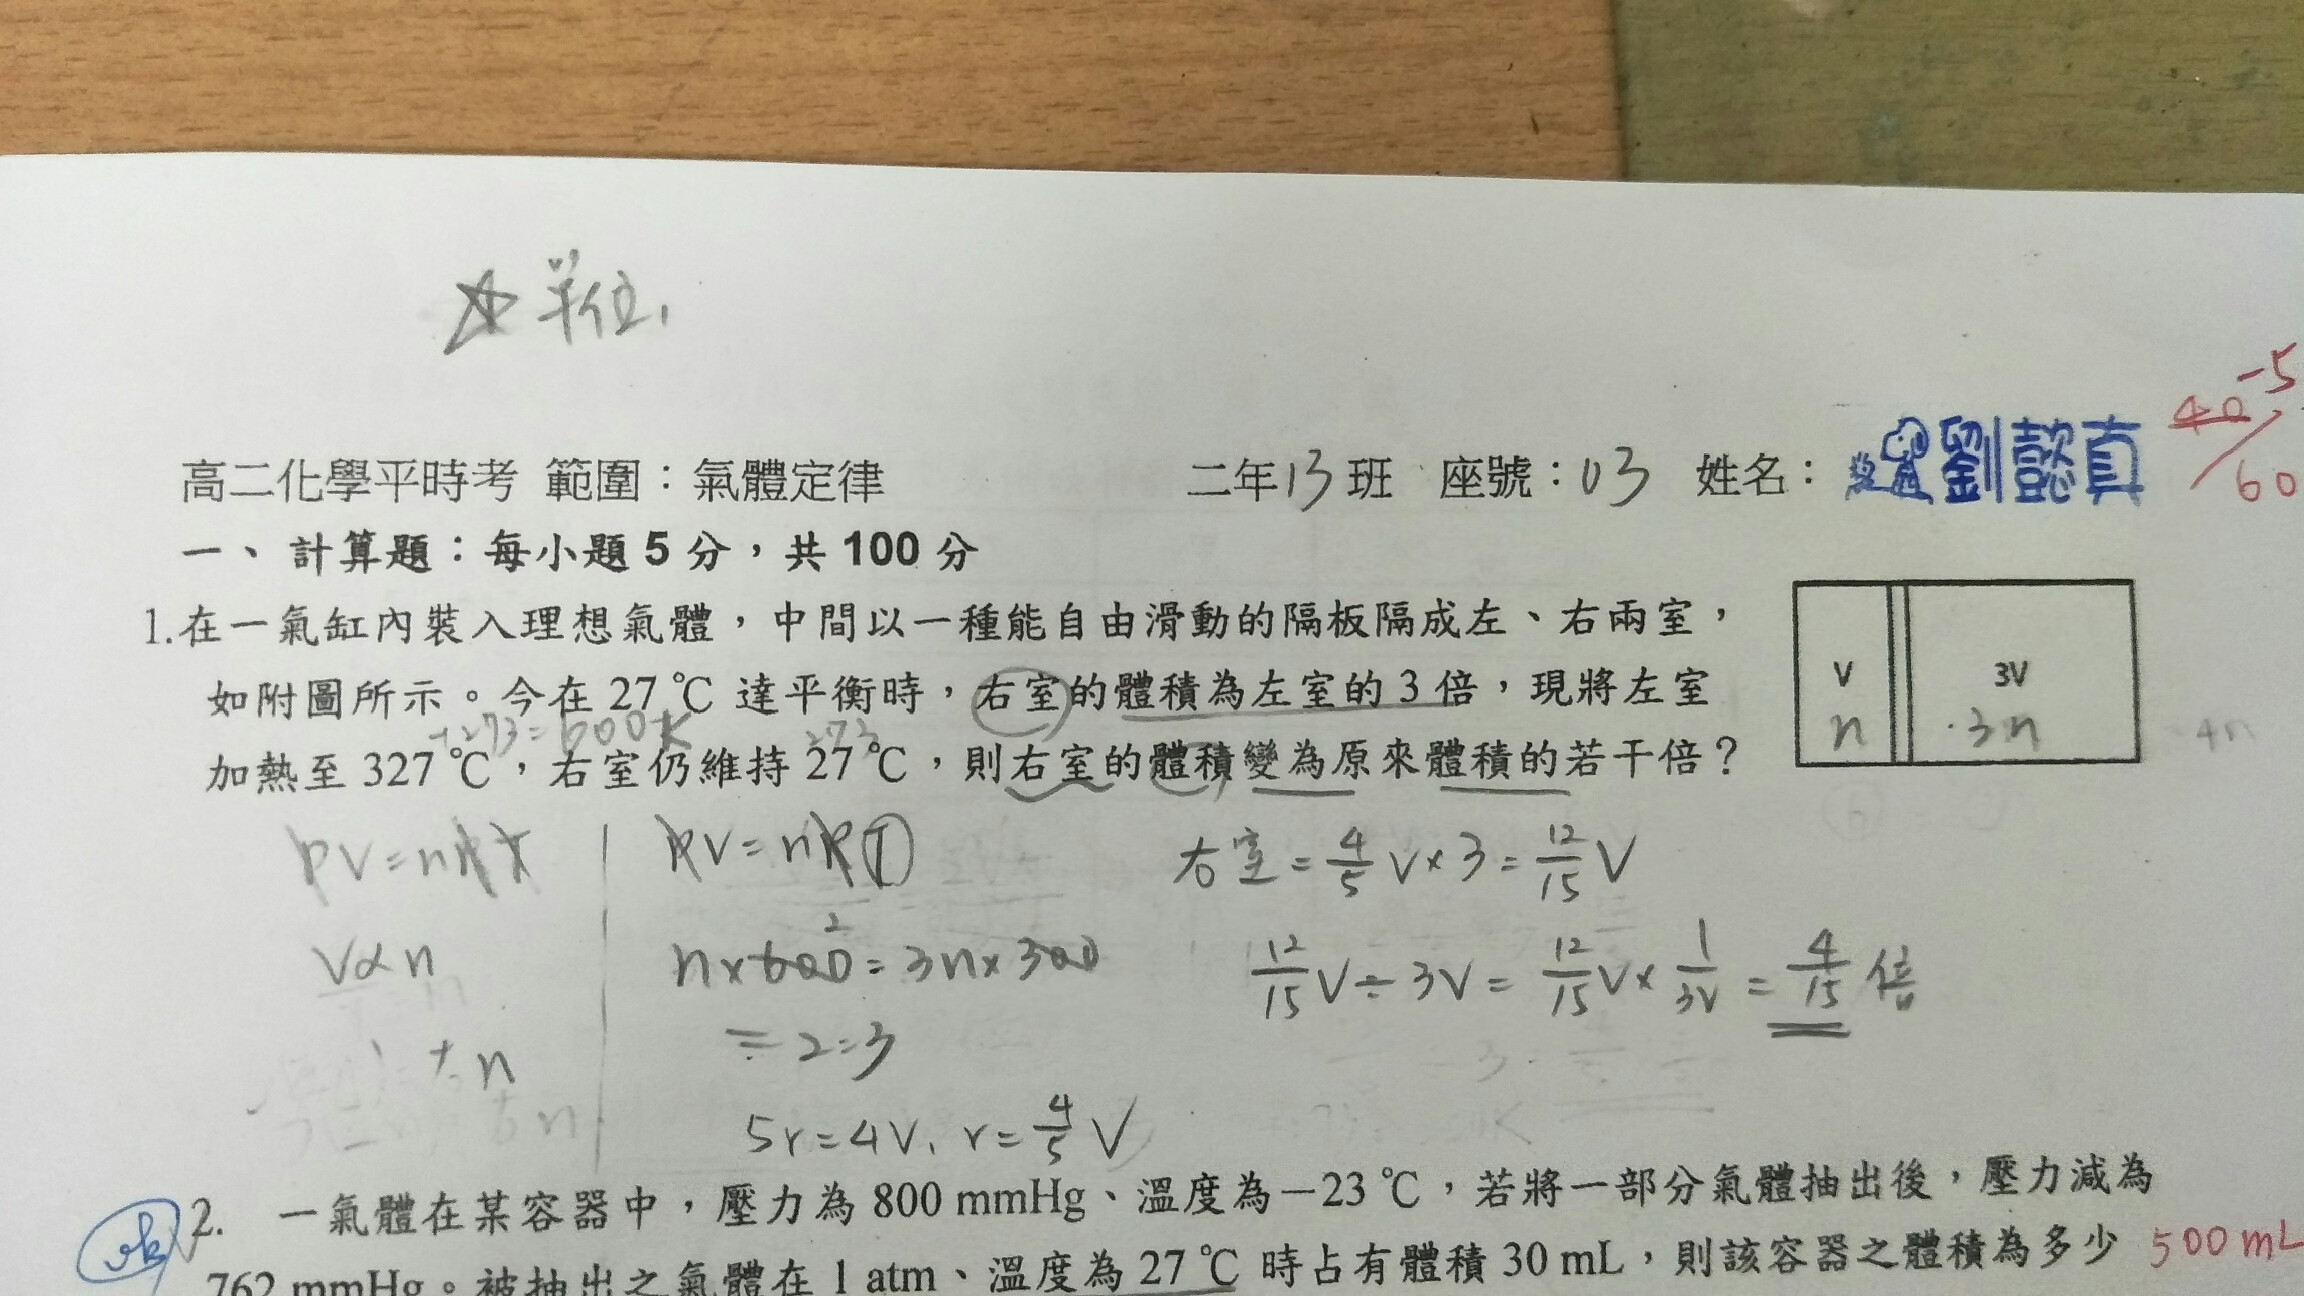 ☆單位,
-5
40/60
高二化學平時考 範圍：氣體定律 二年13班 座號：03 姓名：劉懿真
一、計算題：每小題 5 分，共 100 分
1.在一氣缸內裝入理想氣體，中間以一種能自由滑動的隔板隔成左、右兩室，
如附圖所示。今在 27 ℃ 達平衡時，右室的體積為左室的 3 倍，現將左室
+273=600K 273
加熱至 327 ℃，右室仍維持 27 ℃，則右室的體積變為原來體積的若干倍？
V 3V
n 3n 4n
PV=nRT
V∝n
PV=nRT
n×600=3n×300
2
=2:3
5r=4V, r=4/5 V
右室=4/5 V×3=12/15 V
12/15 V÷3V=12/15 V×1/3V=4/15 倍
ok
2. 一氣體在某容器中，壓力為 800 mmHg、溫度為－23 ℃，若將一部分氣體抽出後，壓力減為
762 mmHg。被抽出之氣體在 1 atm、溫度為 27 ℃ 時占有體積 30 mL，則該容器之體積為多少 500 mL